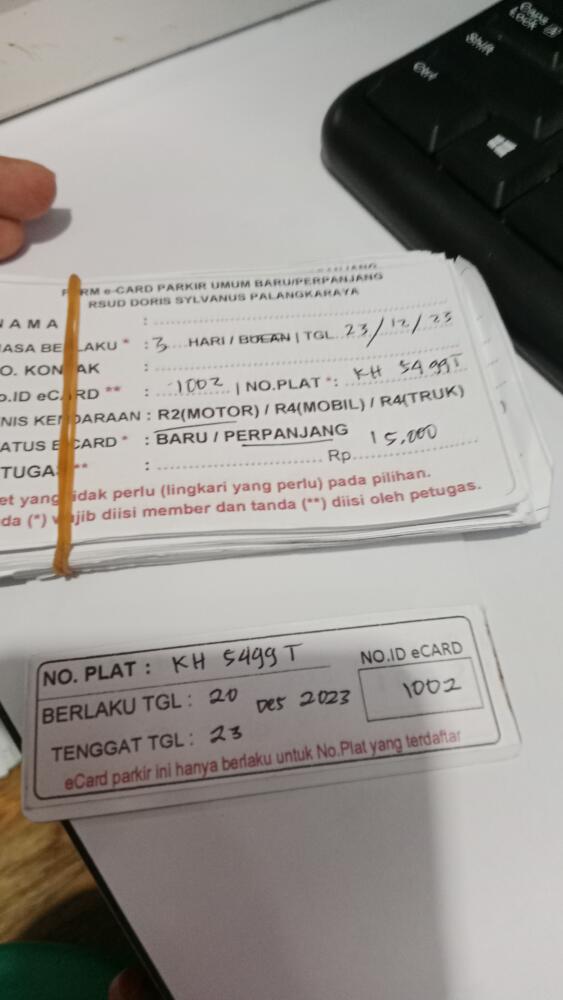 Caps Lock
Shift
Ctrl
RM e-CARD PARKIR UMUM BARU/PERPANJANG
RSUD DORIS SYLVANUS PALANGKARAYA
AMA :
ASA BE LAKU * : 3 HARI / BULAN | TGL. 23/12/23
O. KON AK :
o.ID eC RD ** : 1002 | NO.PLAT *: KH 5499T
NIS KE DARAAN : R2(MOTOR) / R4(MOBIL) / R4(TRUK)
ATUS E CARD * : BARU / PERPANJANG
TUGA ** : Rp. 15,000
et yang idak perlu (lingkari yang perlu) pada pilihan.
da (*) w jib diisi member dan tanda (**) diisi oleh petugas.
NO. PLAT : KH 5499 T
NO.ID eCARD
BERLAKU TGL : 20 Des 2023
1002
TENGGAT TGL : 23
eCard parkir ini hanya berlaku untuk No.Plat yang terdaftar